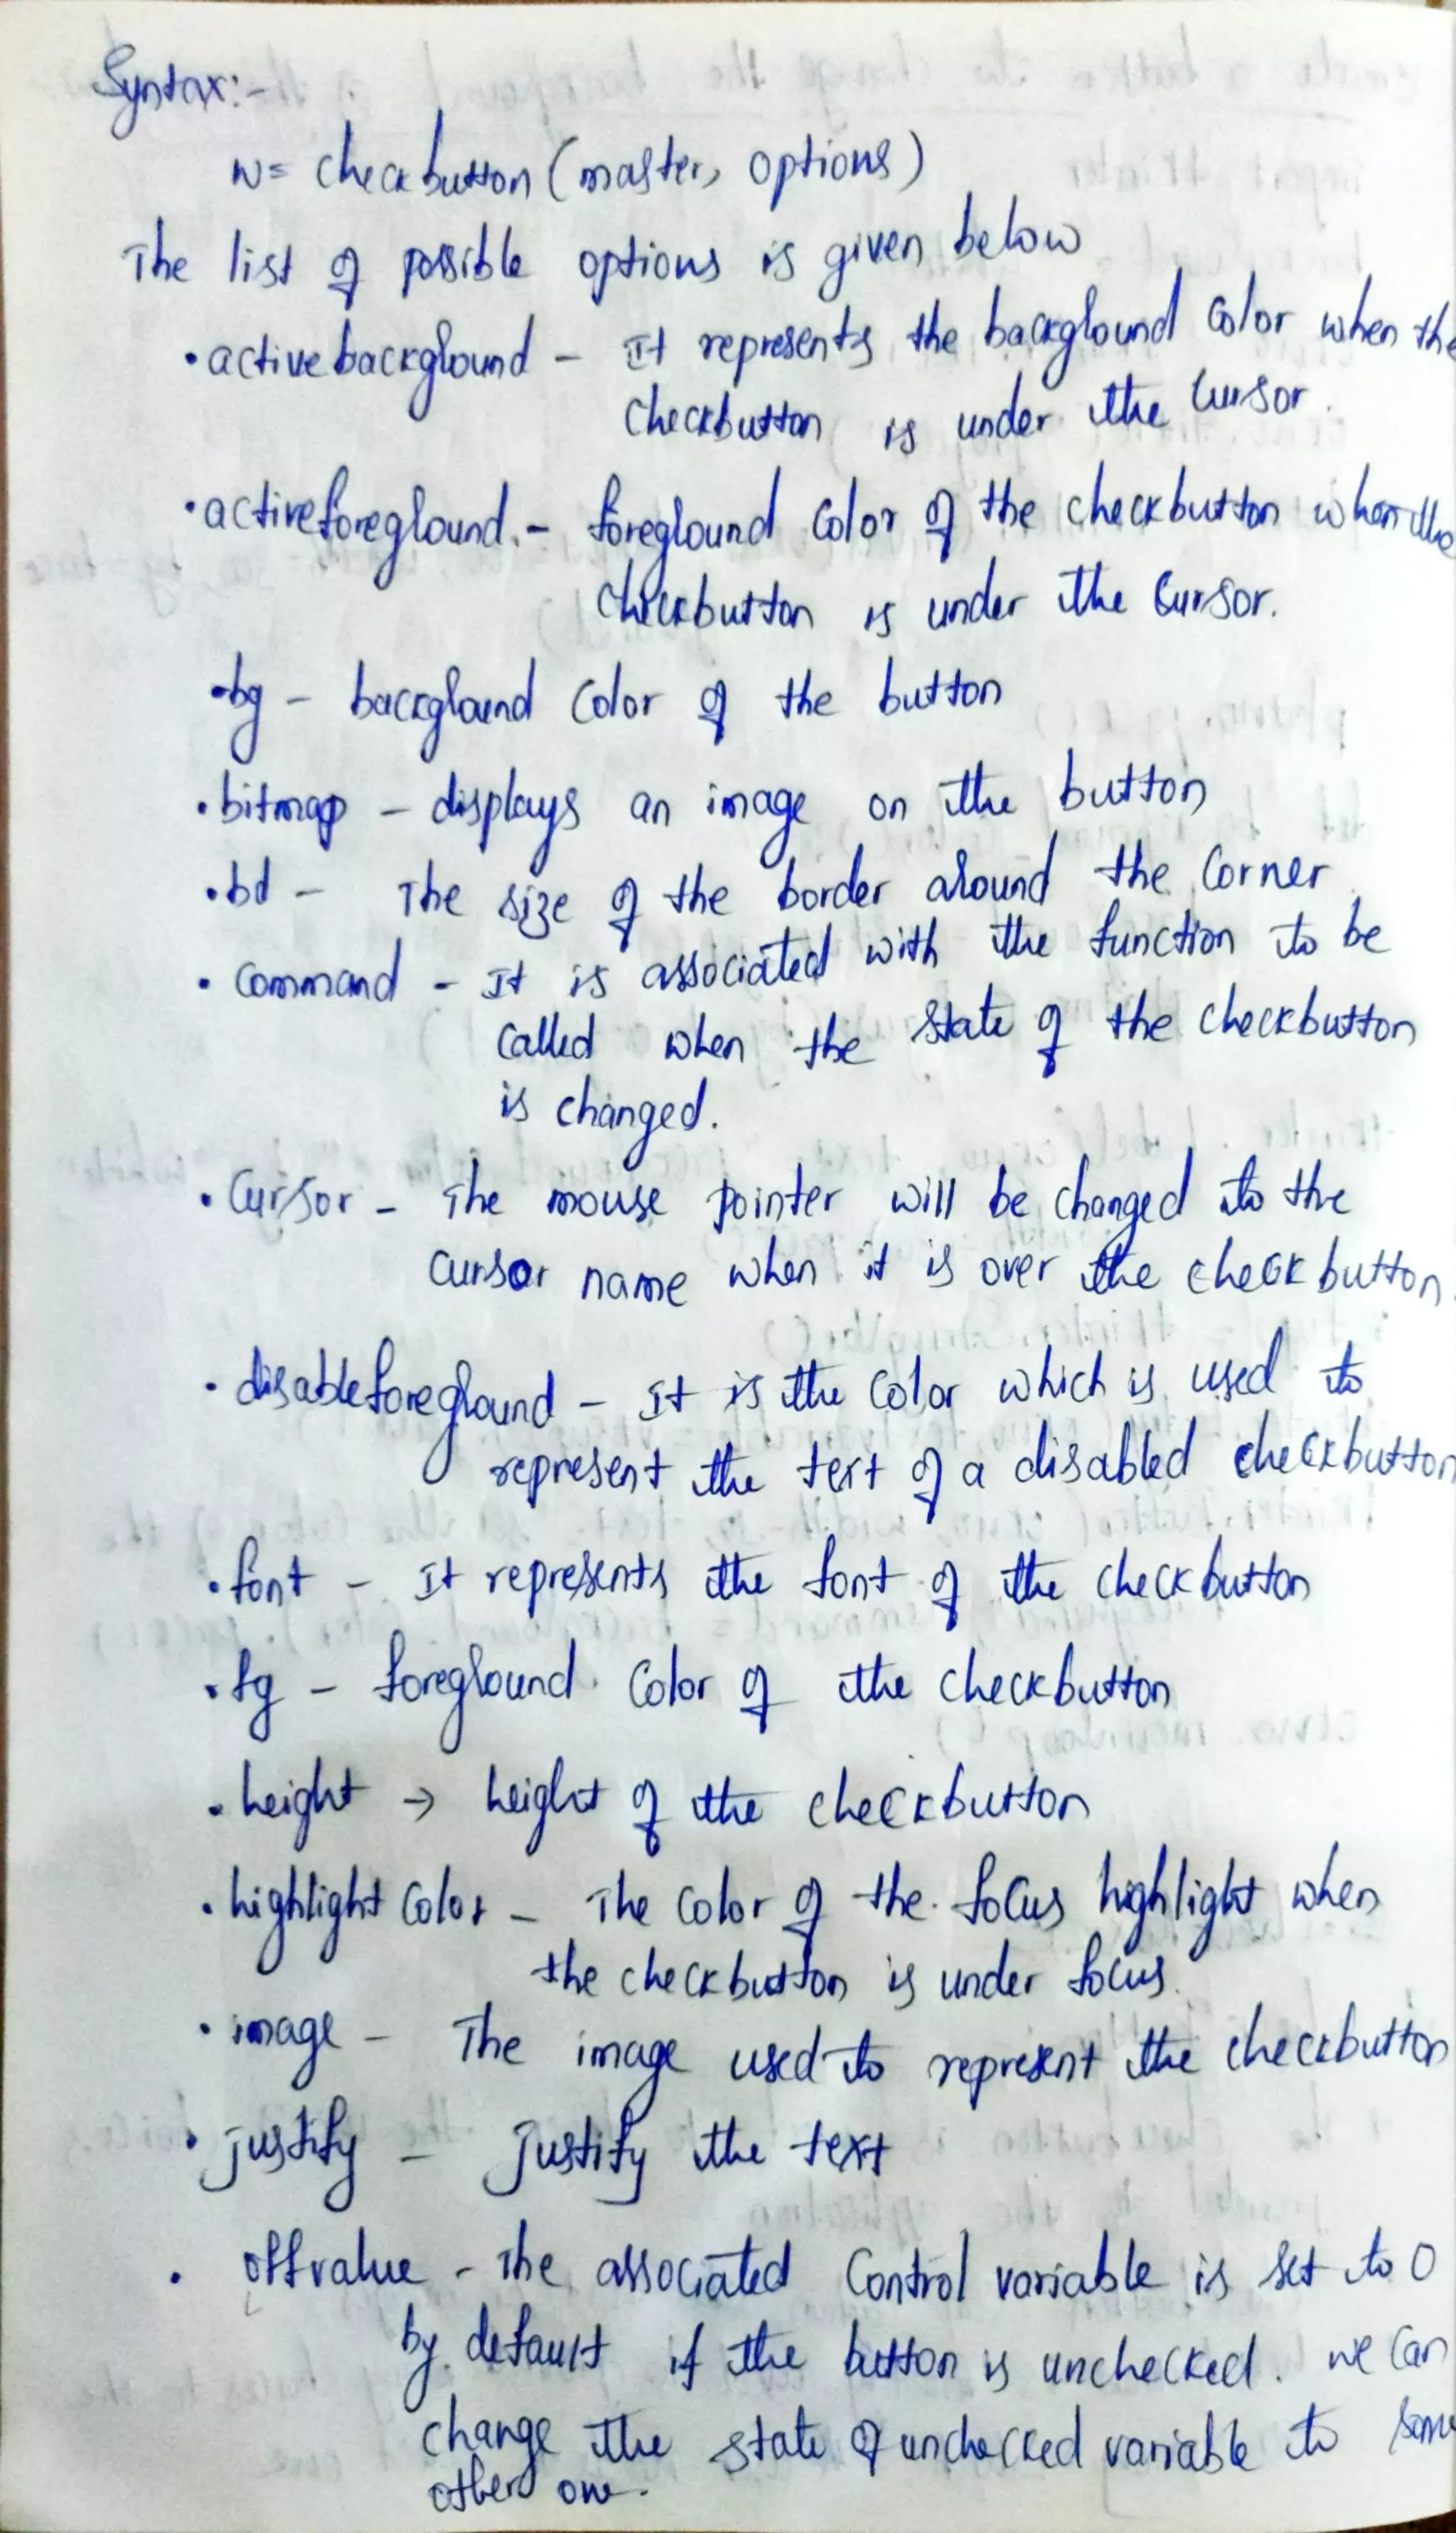 Syntax:-
w= checkbutton (master, options)
The list of possible options is given below
• activebackground - It represents the background color when the
checkbutton is under the cursor.
• activeforeground. - foreground color of the checkbutton when the
checkbutton is under the cursor.
• bg - background color of the button
• bitmap - displays an image on the button
• bd - The size of the border around the corner
• command - It is associated with the function to be
called when the state of the checkbutton
is changed.
• Cursor - The mouse pointer will be changed to the
cursor name when it is over the checkbutton.
• disableforeground - It is the color which is used to
represent the text of a disabled checkbutton
• font - It represents the font of the checkbutton
• fg - foreground color of the checkbutton
• height → height of the checkbutton
• highlight color - The color of the focus highlight when
the checkbutton is under focus.
• image - The image used to represent the checkbutton
• justify - justify the text
• offvalue - The associated control variable is set to 0
by default if the button is unchecked. we can
change the state of unchecked variable to some
other one.